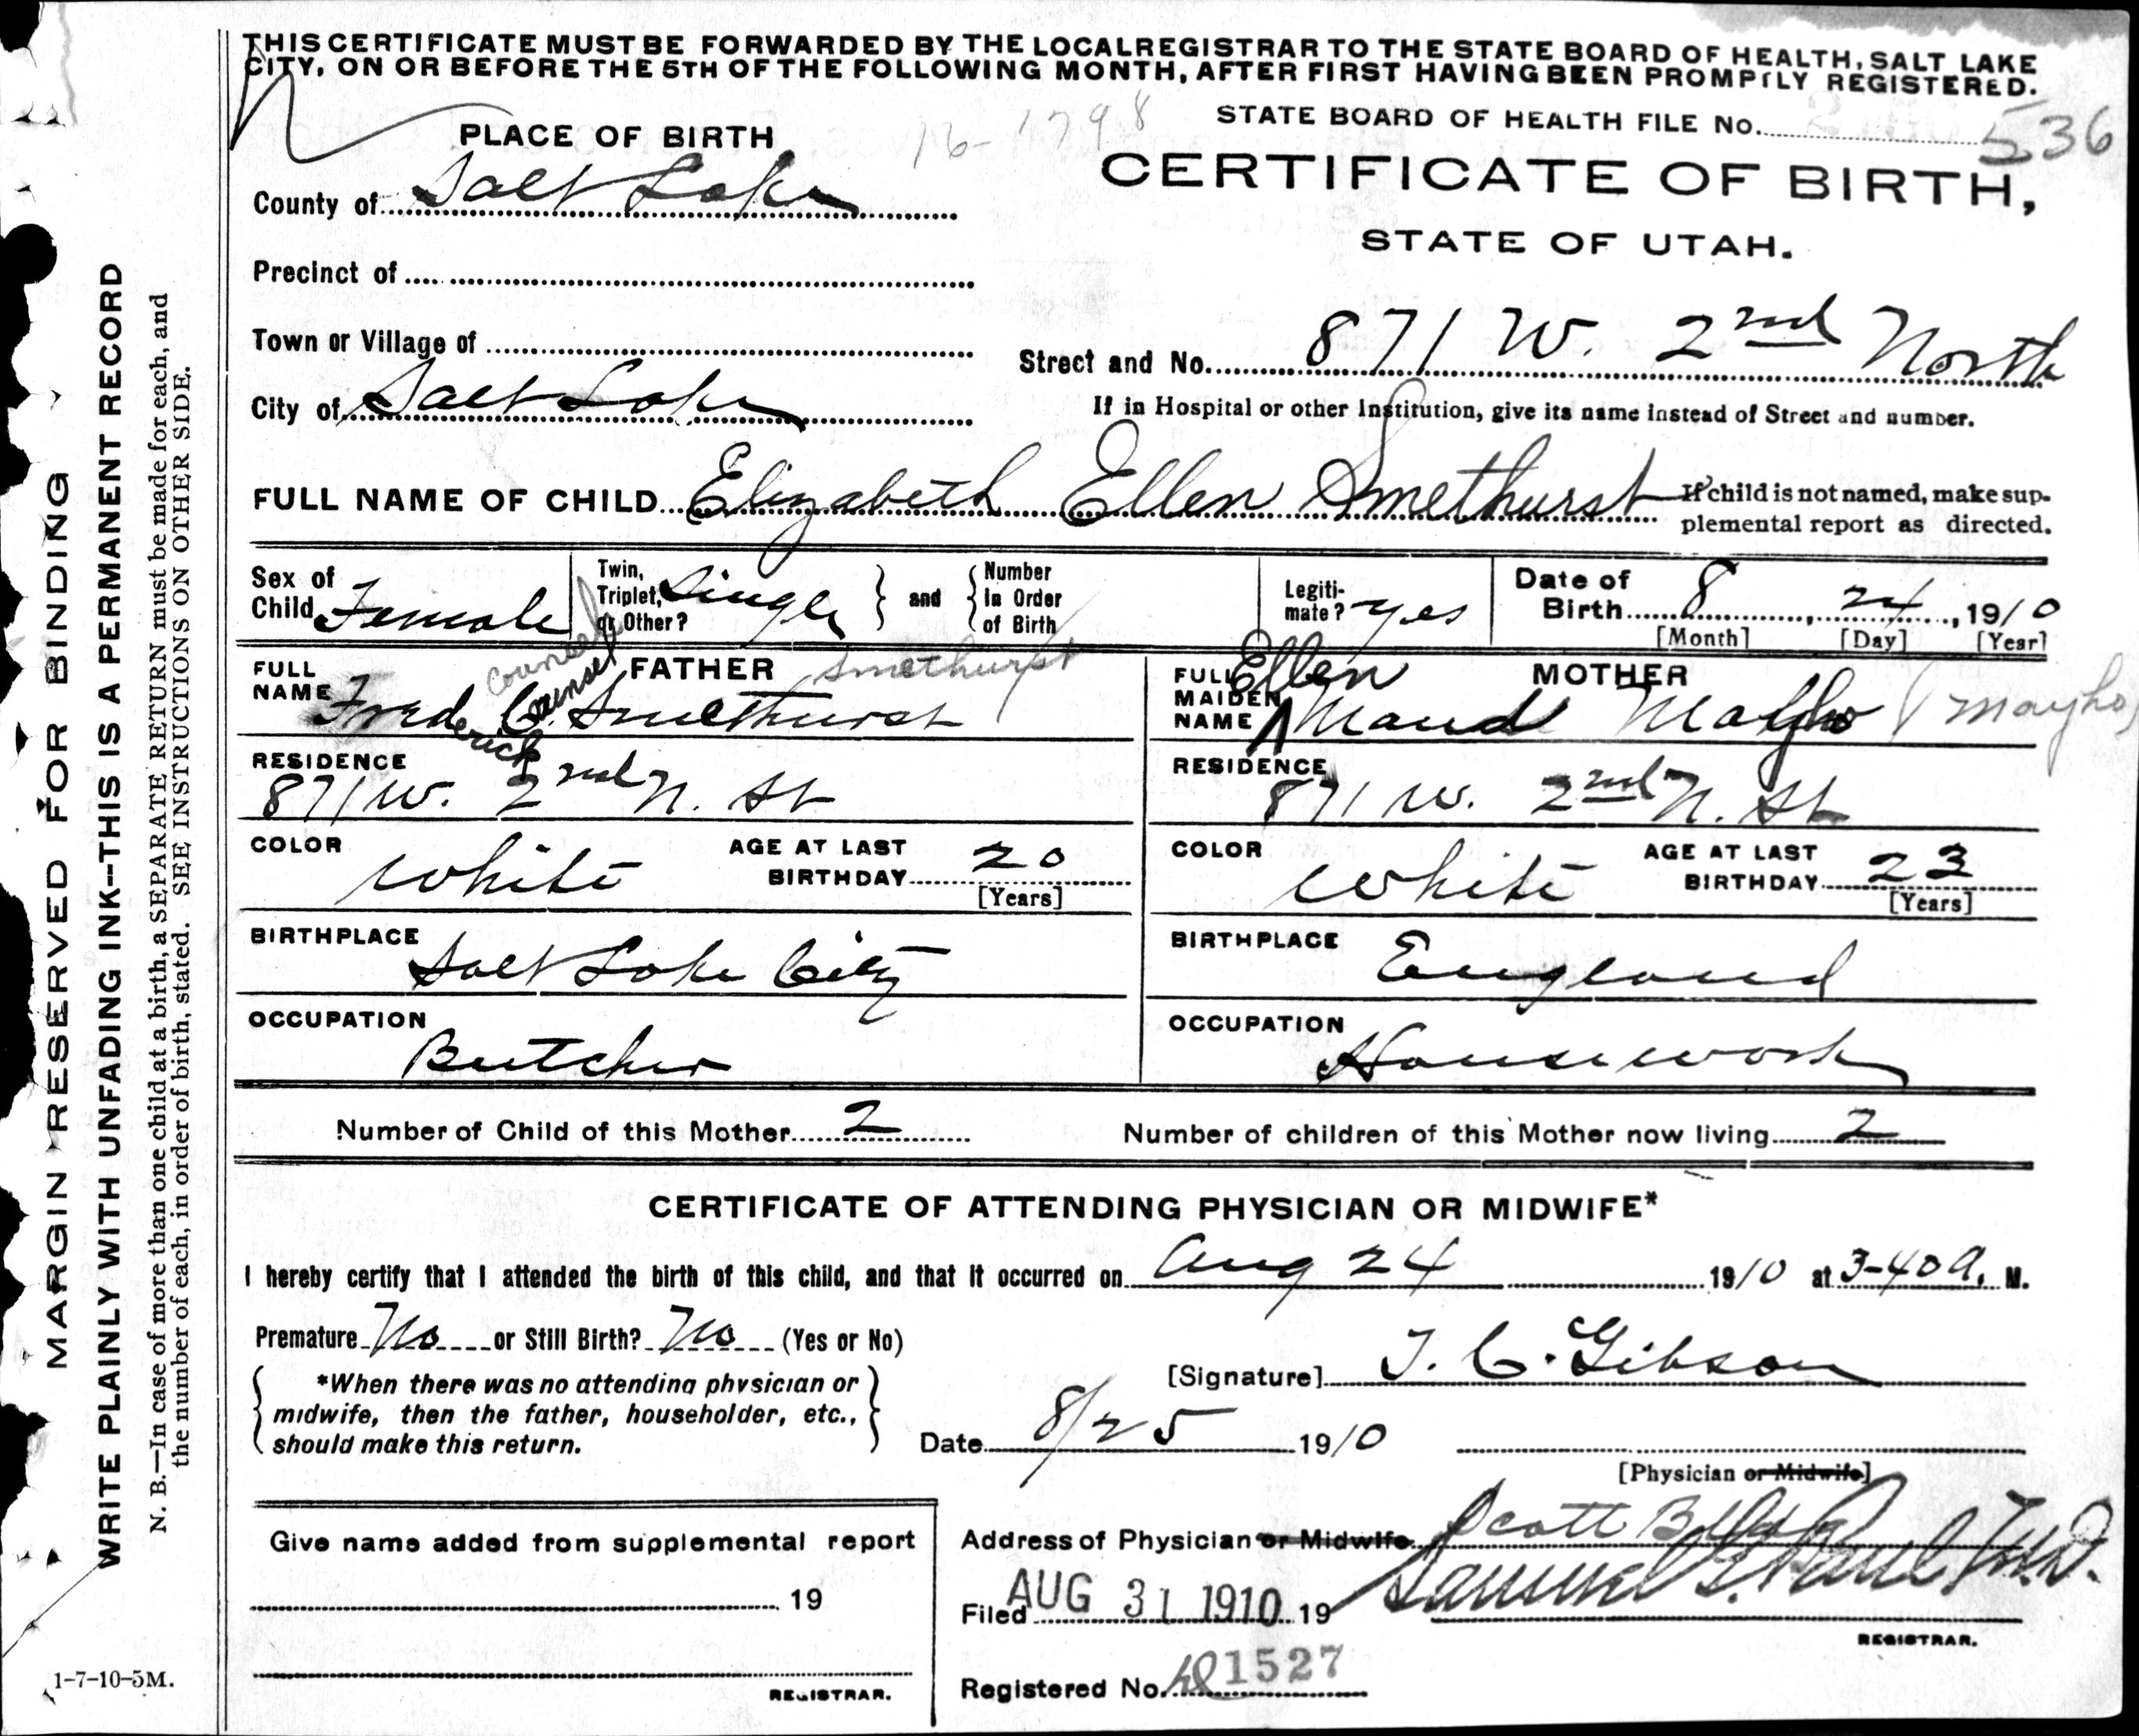 THIS CERTIFICATE MUST BE FORWARDED BY THE LOCAL REGISTRAR TO THE STATE BOARD OF HEALTH, SALT LAKE
CITY, ON OR BEFORE THE 5TH OF THE FOLLOWING MONTH, AFTER FIRST HAVING BEEN PROMPTLY REGISTERED.
16-1798
STATE BOARD OF HEALTH FILE No. 536
PLACE OF BIRTH
CERTIFICATE OF BIRTH,
STATE OF UTAH.
County of Salt Lake
Precinct of
Town or Village of
City of Salt Lake
Street and No. 871 W. 2nd North
If in Hospital or other Institution, give its name instead of Street and number.
FULL NAME OF CHILD Elizabeth Ellen Smethurst
If child is not named, make sup-
plemental report as directed.
Sex of Child Female
Twin, Triplet, or Other? Single
and
Number In Order of Birth
Legiti-mate? yes
Date of Birth 8, 24, 1910
[Month] [Day] [Year]
FATHER
Smethurst
counsel
counsel
FULL NAME Frederick C. Smethurst
RESIDENCE
871 W. 2nd N. St
COLOR White
AGE AT LAST BIRTHDAY 20
[Years]
BIRTHPLACE
Salt Lake City
OCCUPATION
Butcher
MOTHER
FULL MAIDEN NAME Ellen Maud Mayho (Mayho)
RESIDENCE
871 W. 2nd N. St
COLOR White
AGE AT LAST BIRTHDAY 23
[Years]
BIRTHPLACE
England
OCCUPATION
Housework
Number of Child of this Mother 2
Number of children of this Mother now living 2
CERTIFICATE OF ATTENDING PHYSICIAN OR MIDWIFE*
I hereby certify that I attended the birth of this child, and that it occurred on Aug 24 1910 at 3-40 A. M.
Premature No or Still Birth? No (Yes or No)
*When there was no attending physician or
midwife, then the father, householder, etc.,
should make this return.
[Signature] T. C. Gibson
Date 8/25 1910
[Physician or Midwife]
Address of Physician or Midwife Scott Bldg
Samuel G. Paul M.D.
Filed AUG 31 1910 19
REGISTRAR.
Registered No. 1527
Give name added from supplemental report
19
REGISTRAR.
MARGIN RESERVED FOR BINDING
WRITE PLAINLY WITH UNFADING INK--THIS IS A PERMANENT RECORD
N. B.—In case of more than one child at a birth, a SEPARATE RETURN must be made for each, and
the number of each, in order of birth, stated. SEE INSTRUCTIONS ON OTHER SIDE.
1-7-10-5M.